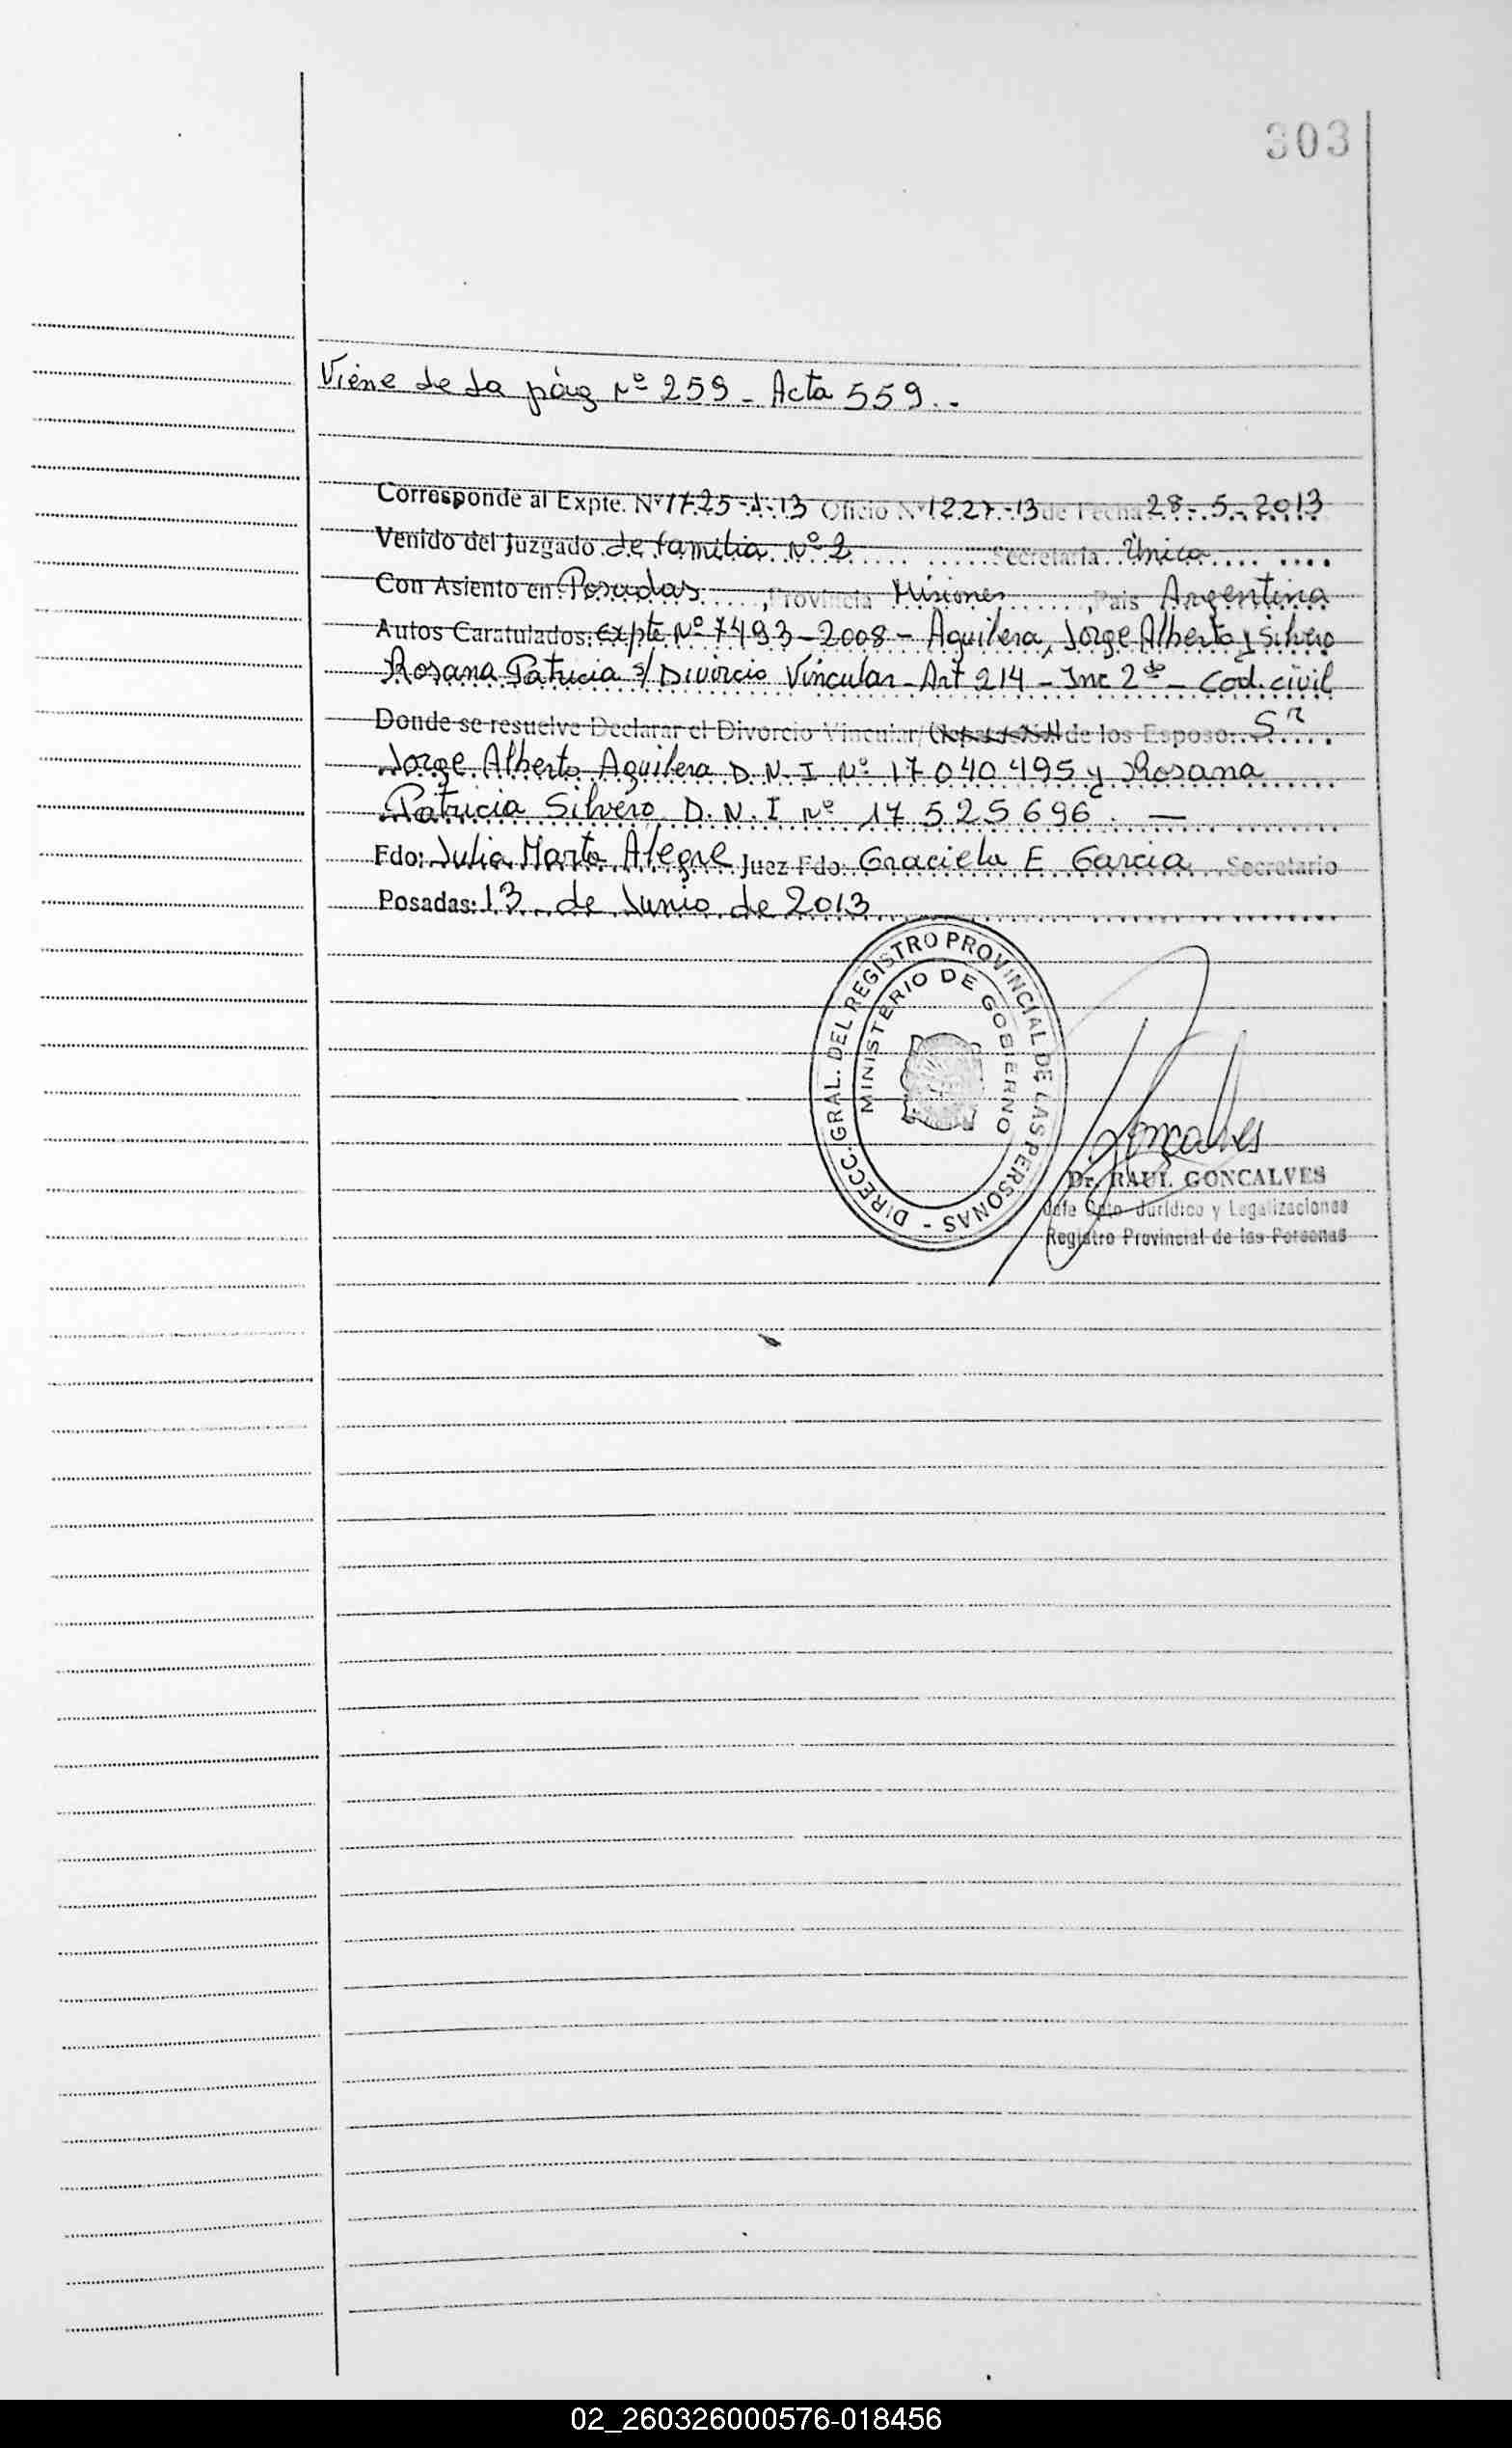 303
Viene de la pág Nº 259 - Acta 559.-
Corresponde al Expte. Nº 1725-A-13 Oficio Nº 1227-13 de Fecha 28-5-2013
Venido del Juzgado de familia Nº 2 Secretaria Única
Con Asiento en Posadas, Provincia Misiones, Pais Argentina
Autos Caratulados: Expte Nº 7493-2008 - Aguilera, Jorge Alberto y Silvero
Rosana Patricia s/ Divorcio Vincular - Art 214 - Inc 2do - Cod. civil
Donde se resuelve Declarar el Divorcio Vincular/ de los Esposo: Sr
Jorge Alberto Aguilera D.N.I Nº 17 040 495 y Rosana
Patricia Silvero D.N.I Nº 17 525 696. —
Fdo: Julia Marta Alegre Juez Fdo: Graciela E Garcia Secretario
Posadas: 13 de Junio de 2013
DIRECC. GRAL. DEL REGISTRO PROVINCIAL DE LAS PERSONAS -
MINISTERIO DE GOBIERNO
Goncalves
Dr. RAUL GONCALVES
Jefe Dpto. Jurídico y Legalizaciones
Registro Provincial de las Personas
02_260326000576-018456